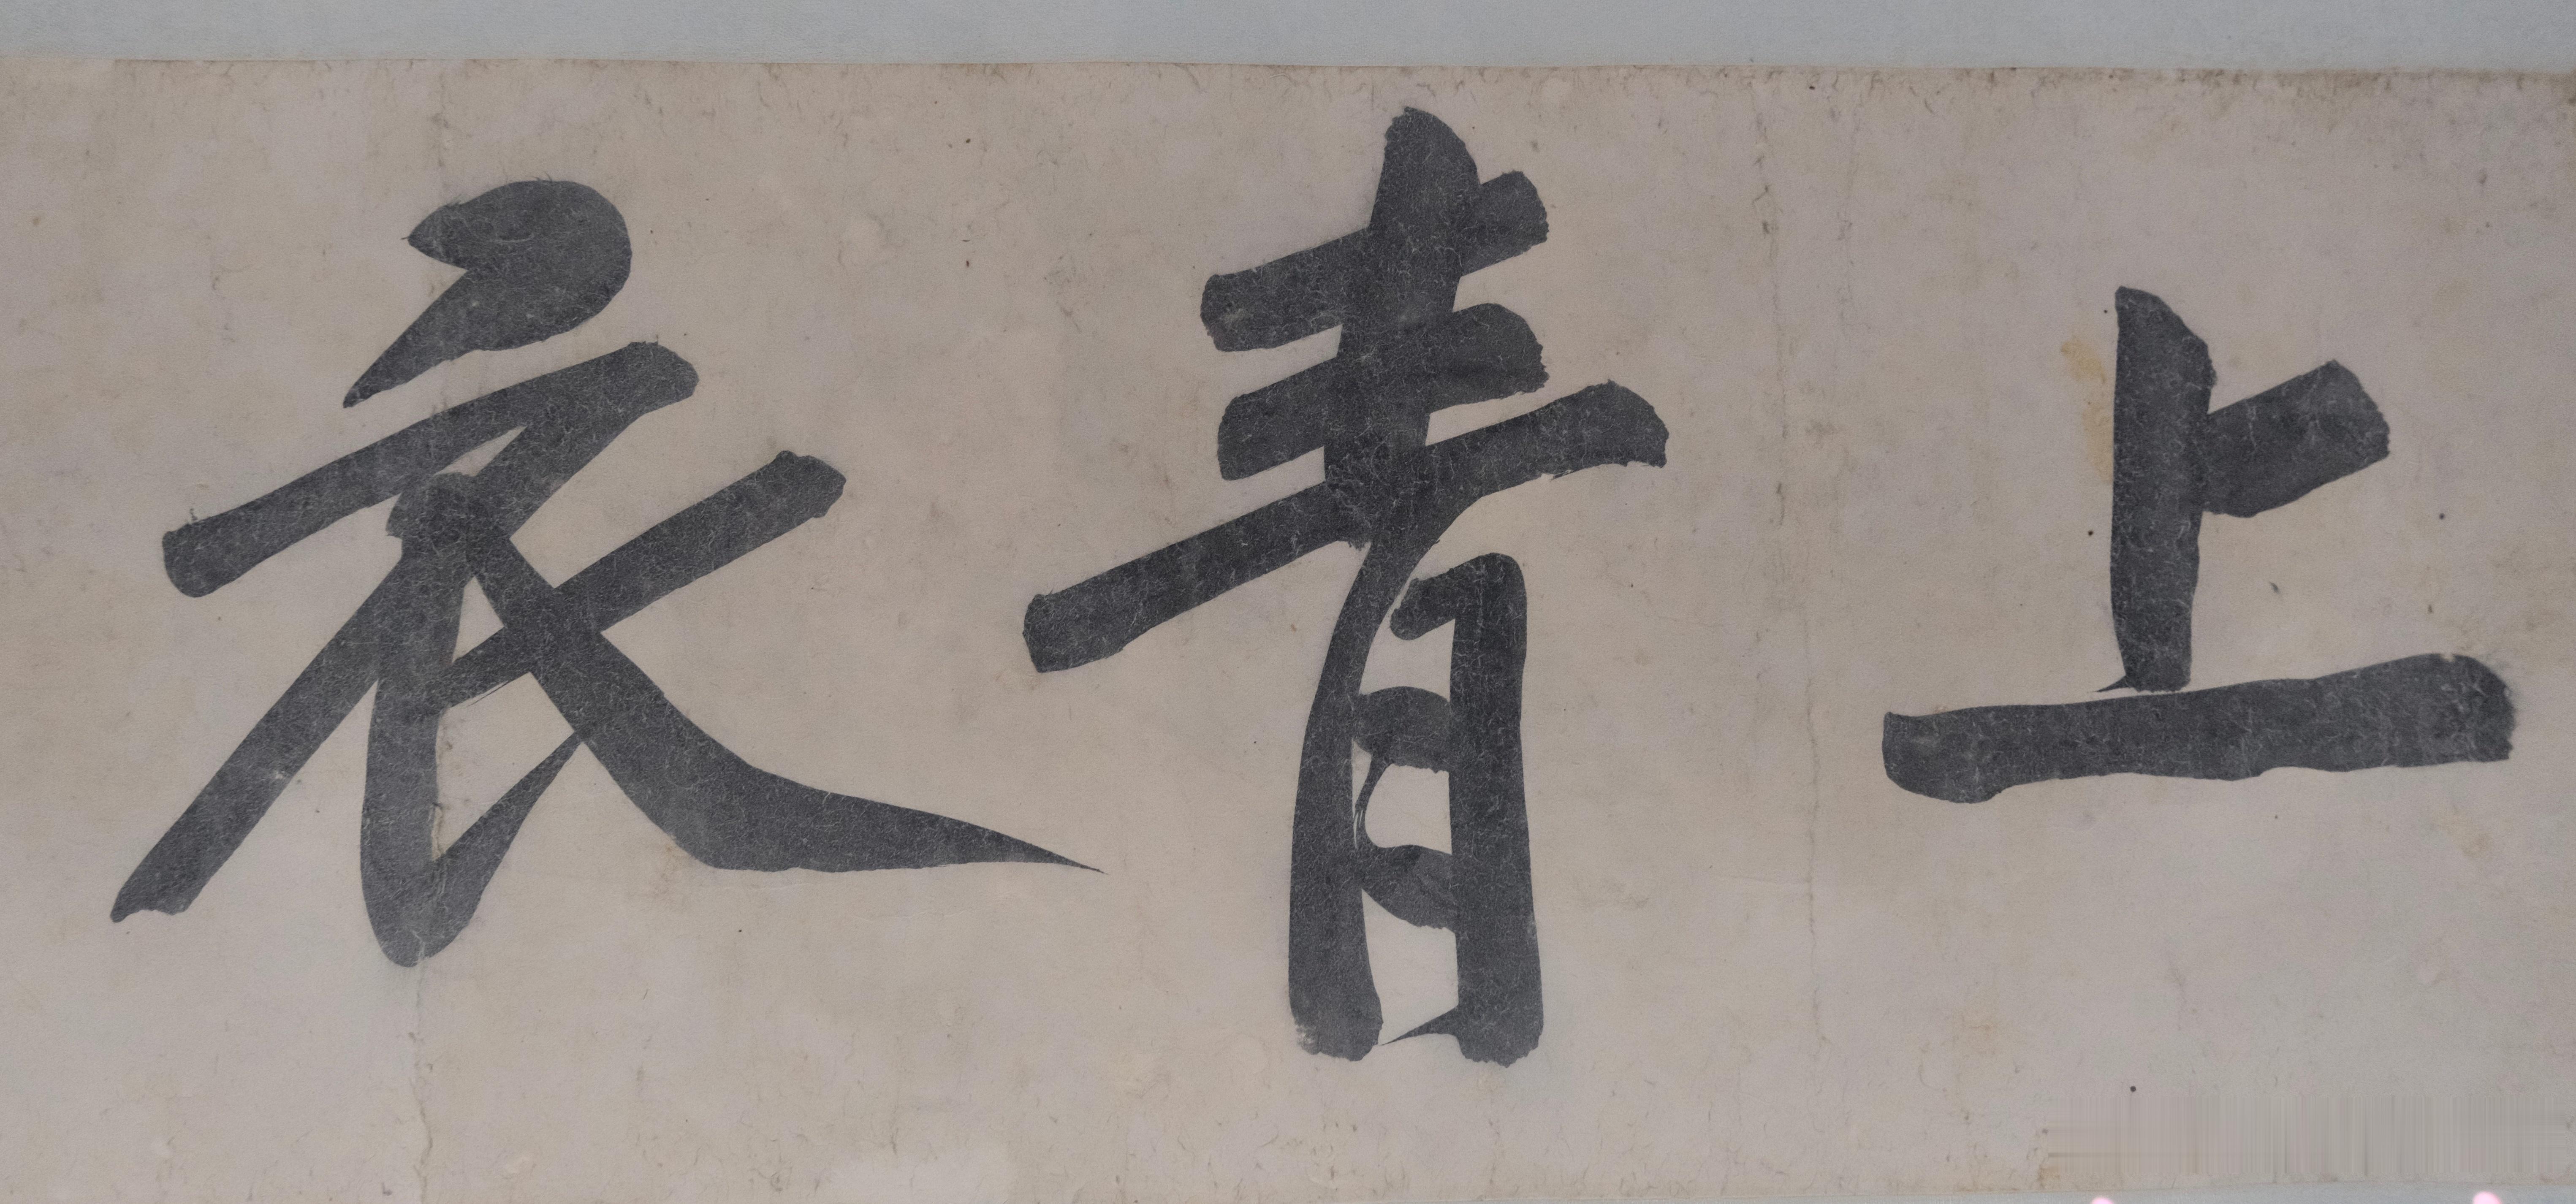 上青衣